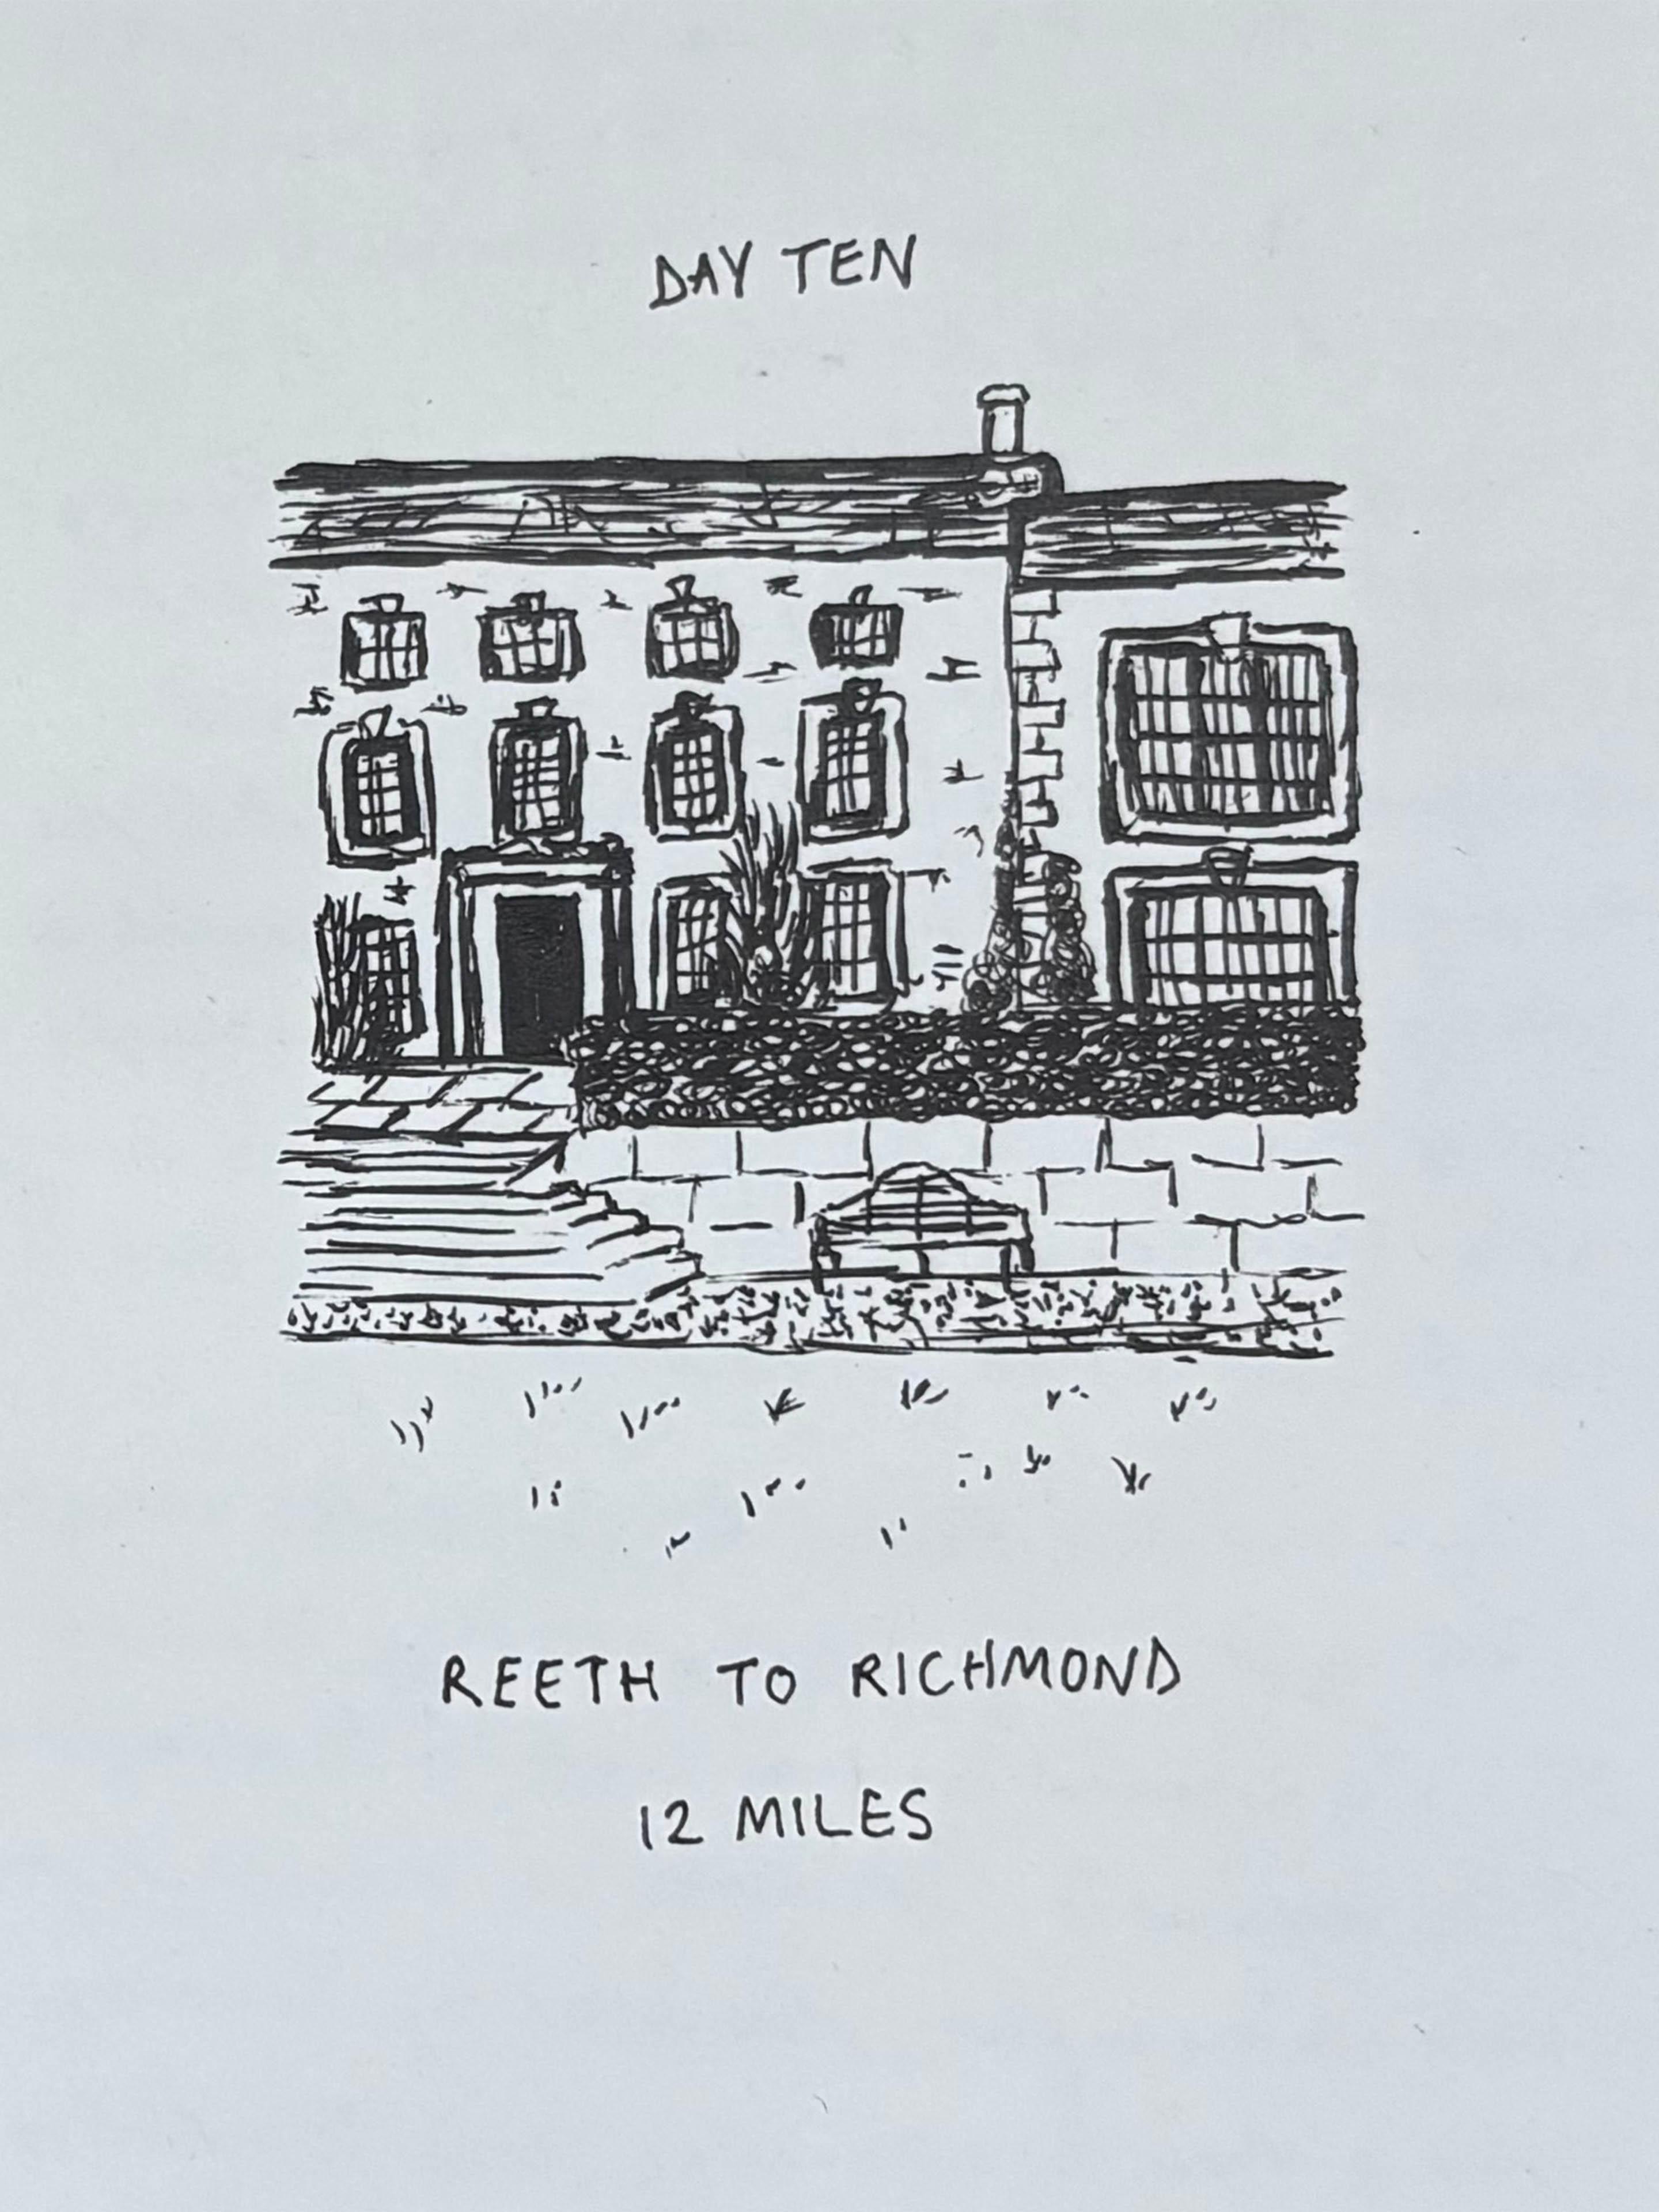 DAY TEN
REETH TO RICHMOND
12 MILES